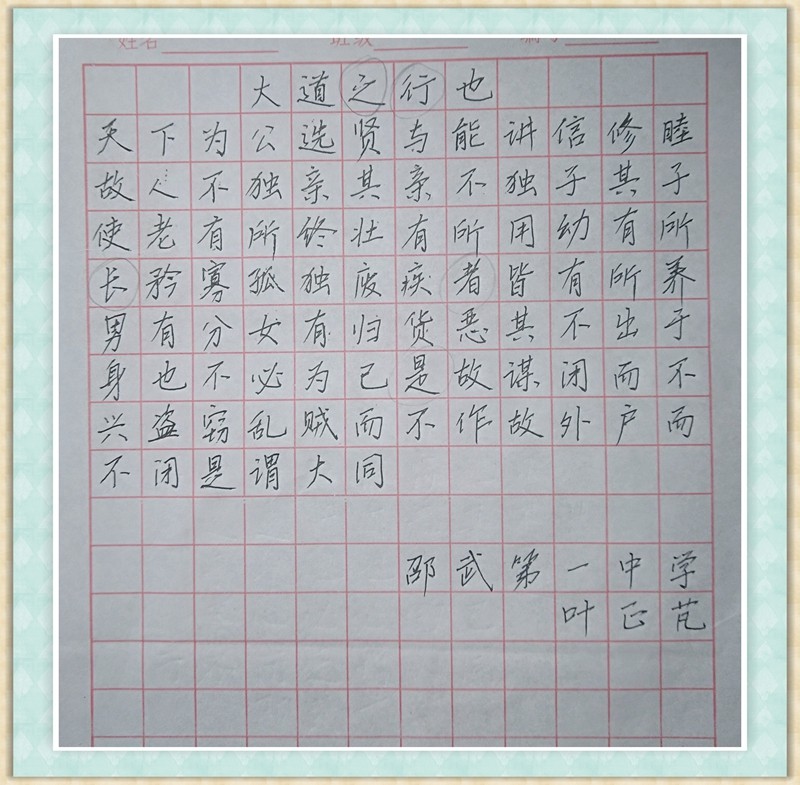 姓名 班级 编号
大道之行也
天下为公选贤与能讲信修睦
故人不独亲其亲不独子其子
使老有所终壮有所用幼有所
长矜寡孤独废疾者皆有所养
男有分女有归货恶其不出于
身也不必为己是故谋闭而不
兴盗窃乱贼而不作故外户而
不闭是谓大同
邵武第一中学
叶正芃